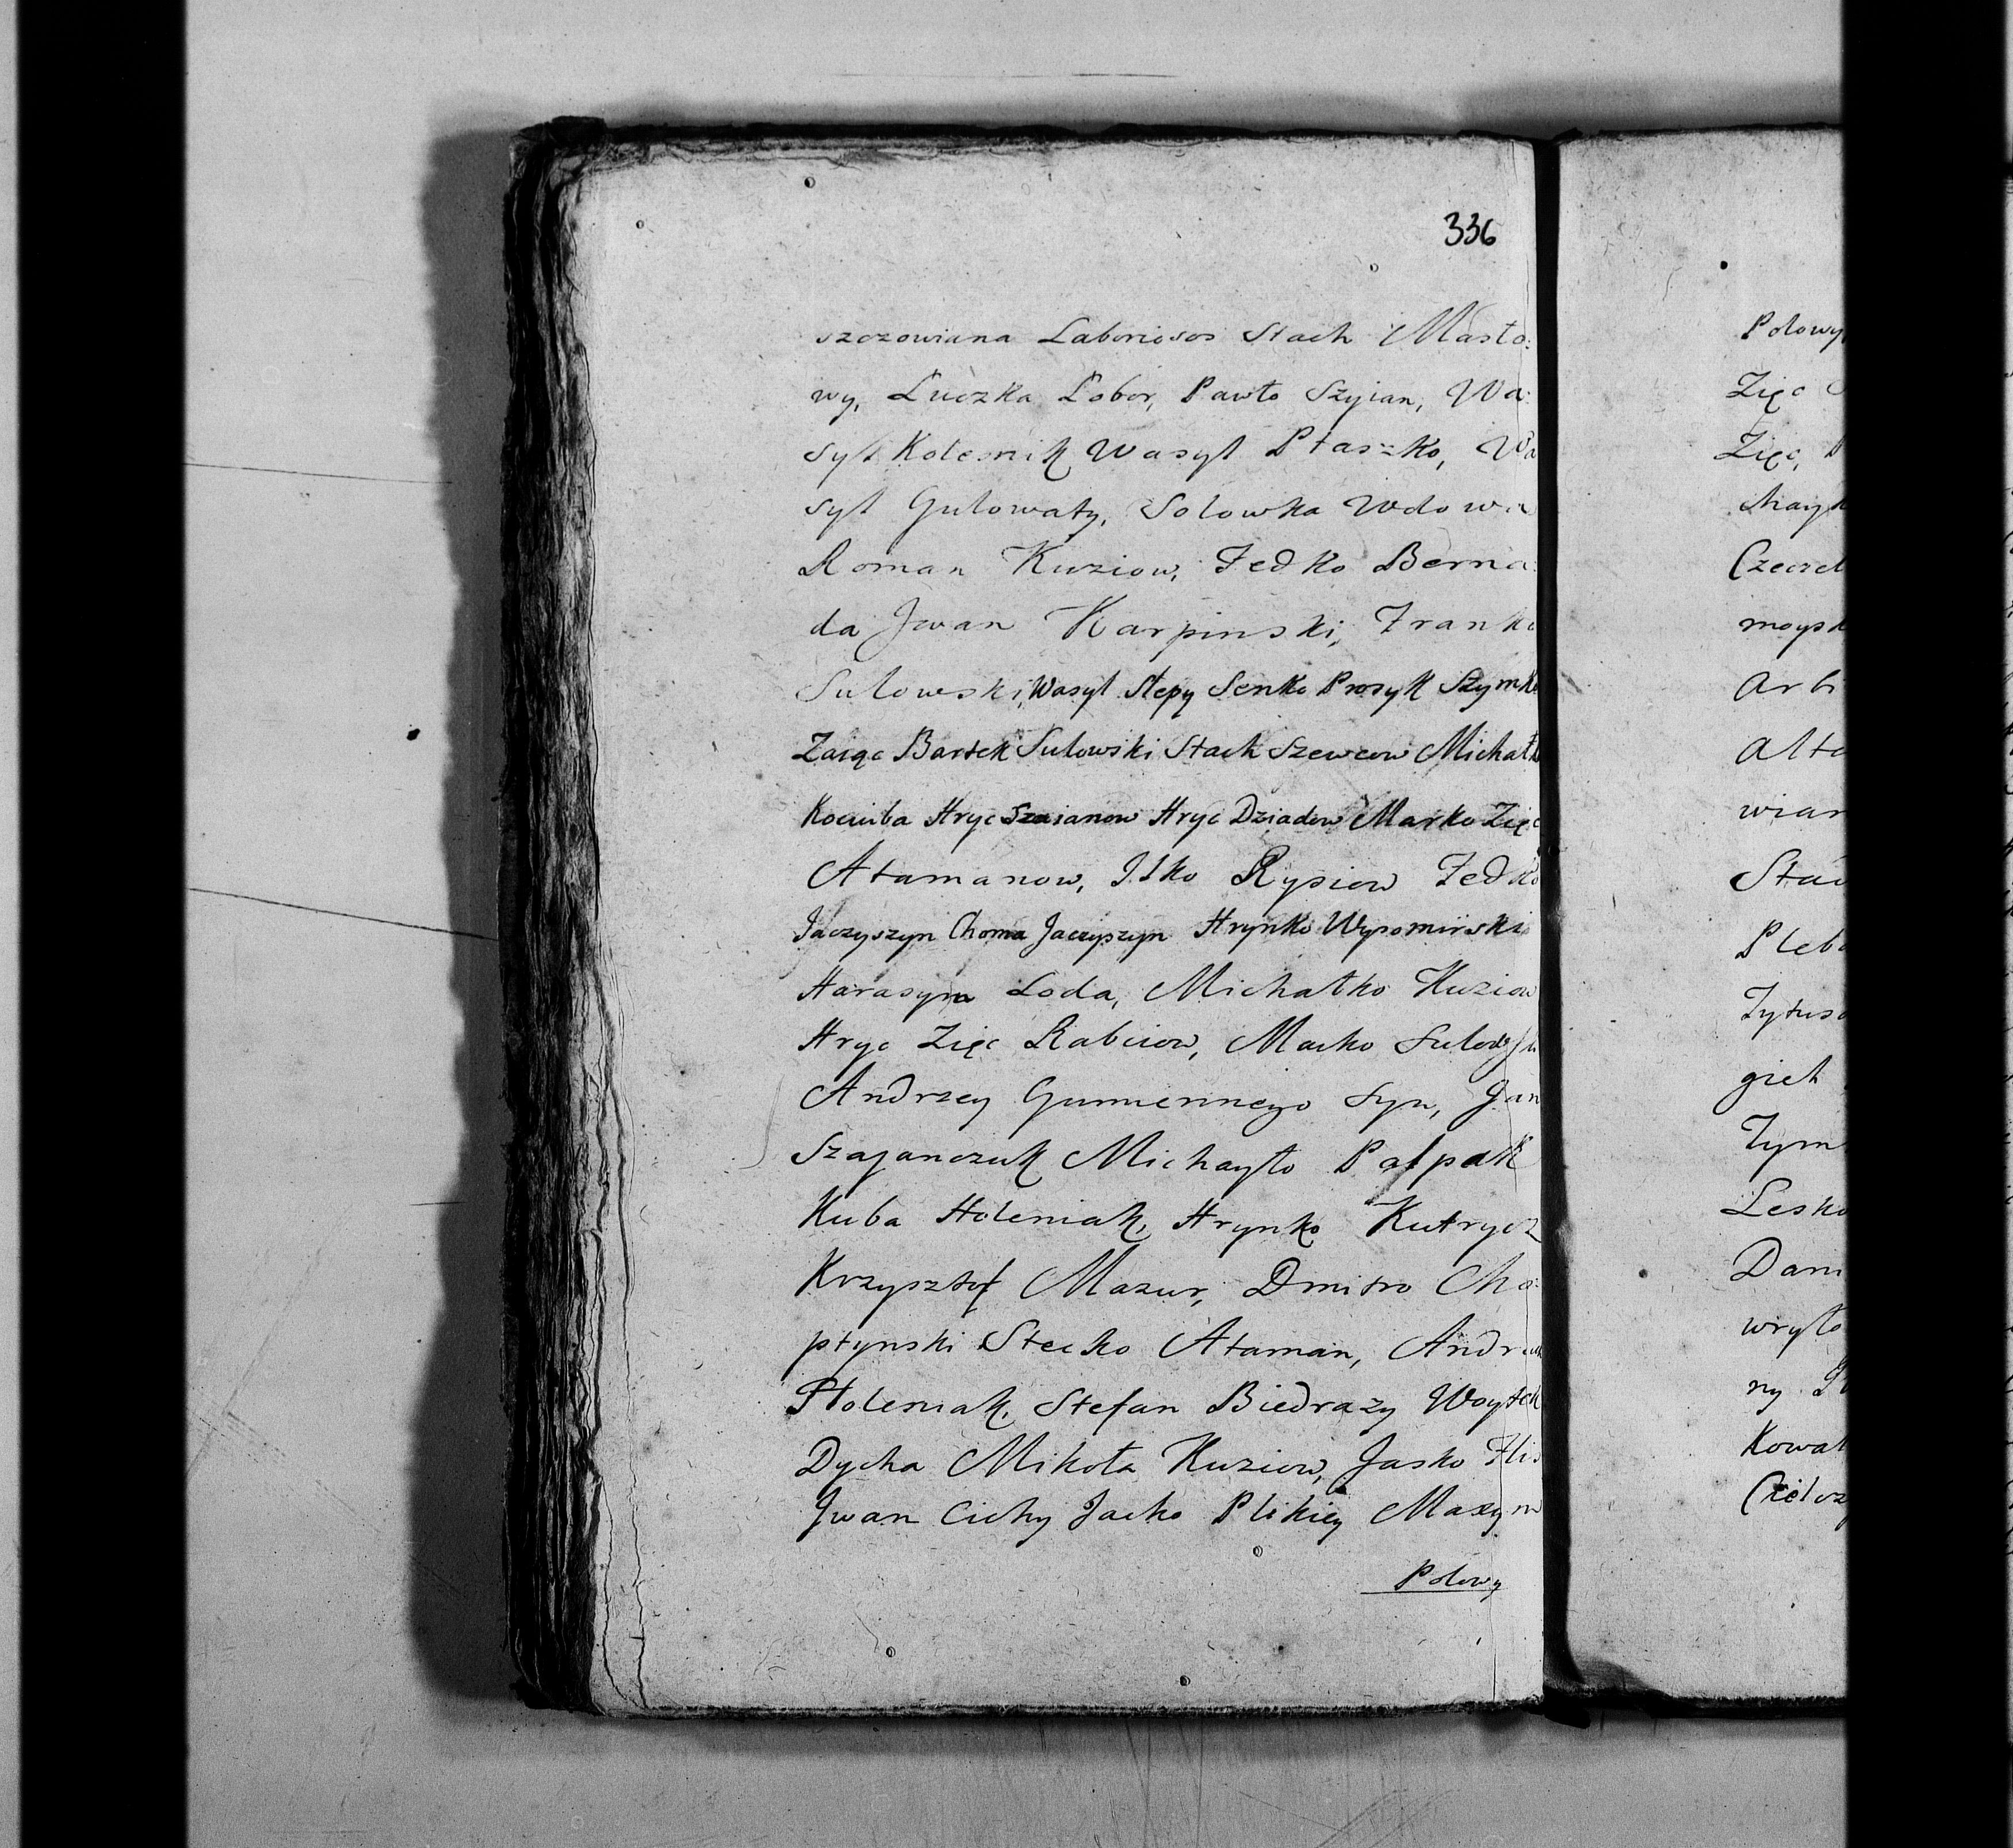 336
szczowiana Laboriosos Stach Masło:
wy, Łuczka Łobor, Pawło Szyian, Wa:
syl Kolesnik Wasyl Ptaszko, Wa
syl Gulowaty, Solowka Wdowa
Roman Kuziow, Fedko Berna:
da Jwan Karpinski, Franko
Sulowski, Wasyl Slepy Senko Prosyk Szymko
Zaiąc Bartek Sulowski Stach Szewcow Michałko
Kociuba Hryc Szaianow Hryc Dziadow Marko Zięc
Atamanow, Ilko Rysiow Fedko
Jaczyszyn Choma Jaczyszyn Hrynko Wyromirski
Harasym Loda, Michałko Kuziow
Hryc Zięc Rabiiow, Maćko Sulowski
Andrzey Gumiennego Syn, Jan
Szajanczuk Michayło Palpak
Kuba Holeniak, Hrynko Kutrycz
Krzysztof Mazur, Dmitro Cho:
ptynski Stecko Ataman,
Holeniak, Stefan Biedrazy Woytek
Dycha Mikoła Kuziow, Jasko
Jwan Cichy Jacko Plikiey Maxym
Polowy
Polowy
Zięc
Zięc,
moysk
wiar
Pleb
gich
Lesko
wryło
ny
Kowal